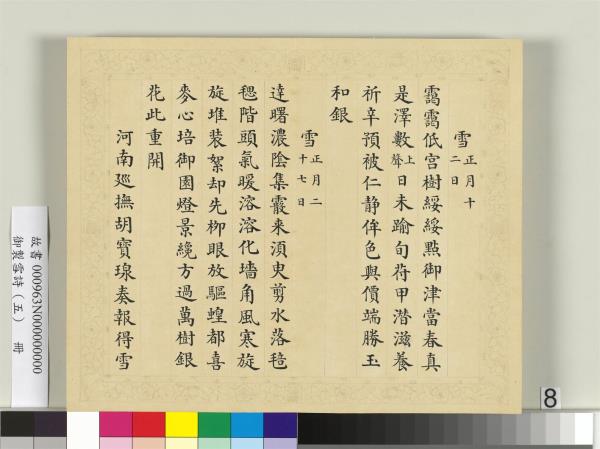 雪 正月十
二日
靄靄低宮樹綏綏點御津當春真
是澤數上聲日未踰旬苻甲潛滋養
祈辛預被仁静侔色與價端勝玉
和銀
雪 正月二
十七日
達曙濃陰集霰来須臾剪水落毰
毸階頭氣暖溶溶化墻角風寒旋
旋堆裝絮却先栁眼放驅蝗都喜
麥心培御園燈景纔方過萬樹銀
花此重開
河南廵撫胡寶瑔奏報得雪
故書 000963N000000000
御製雪詩（五） 冊
8